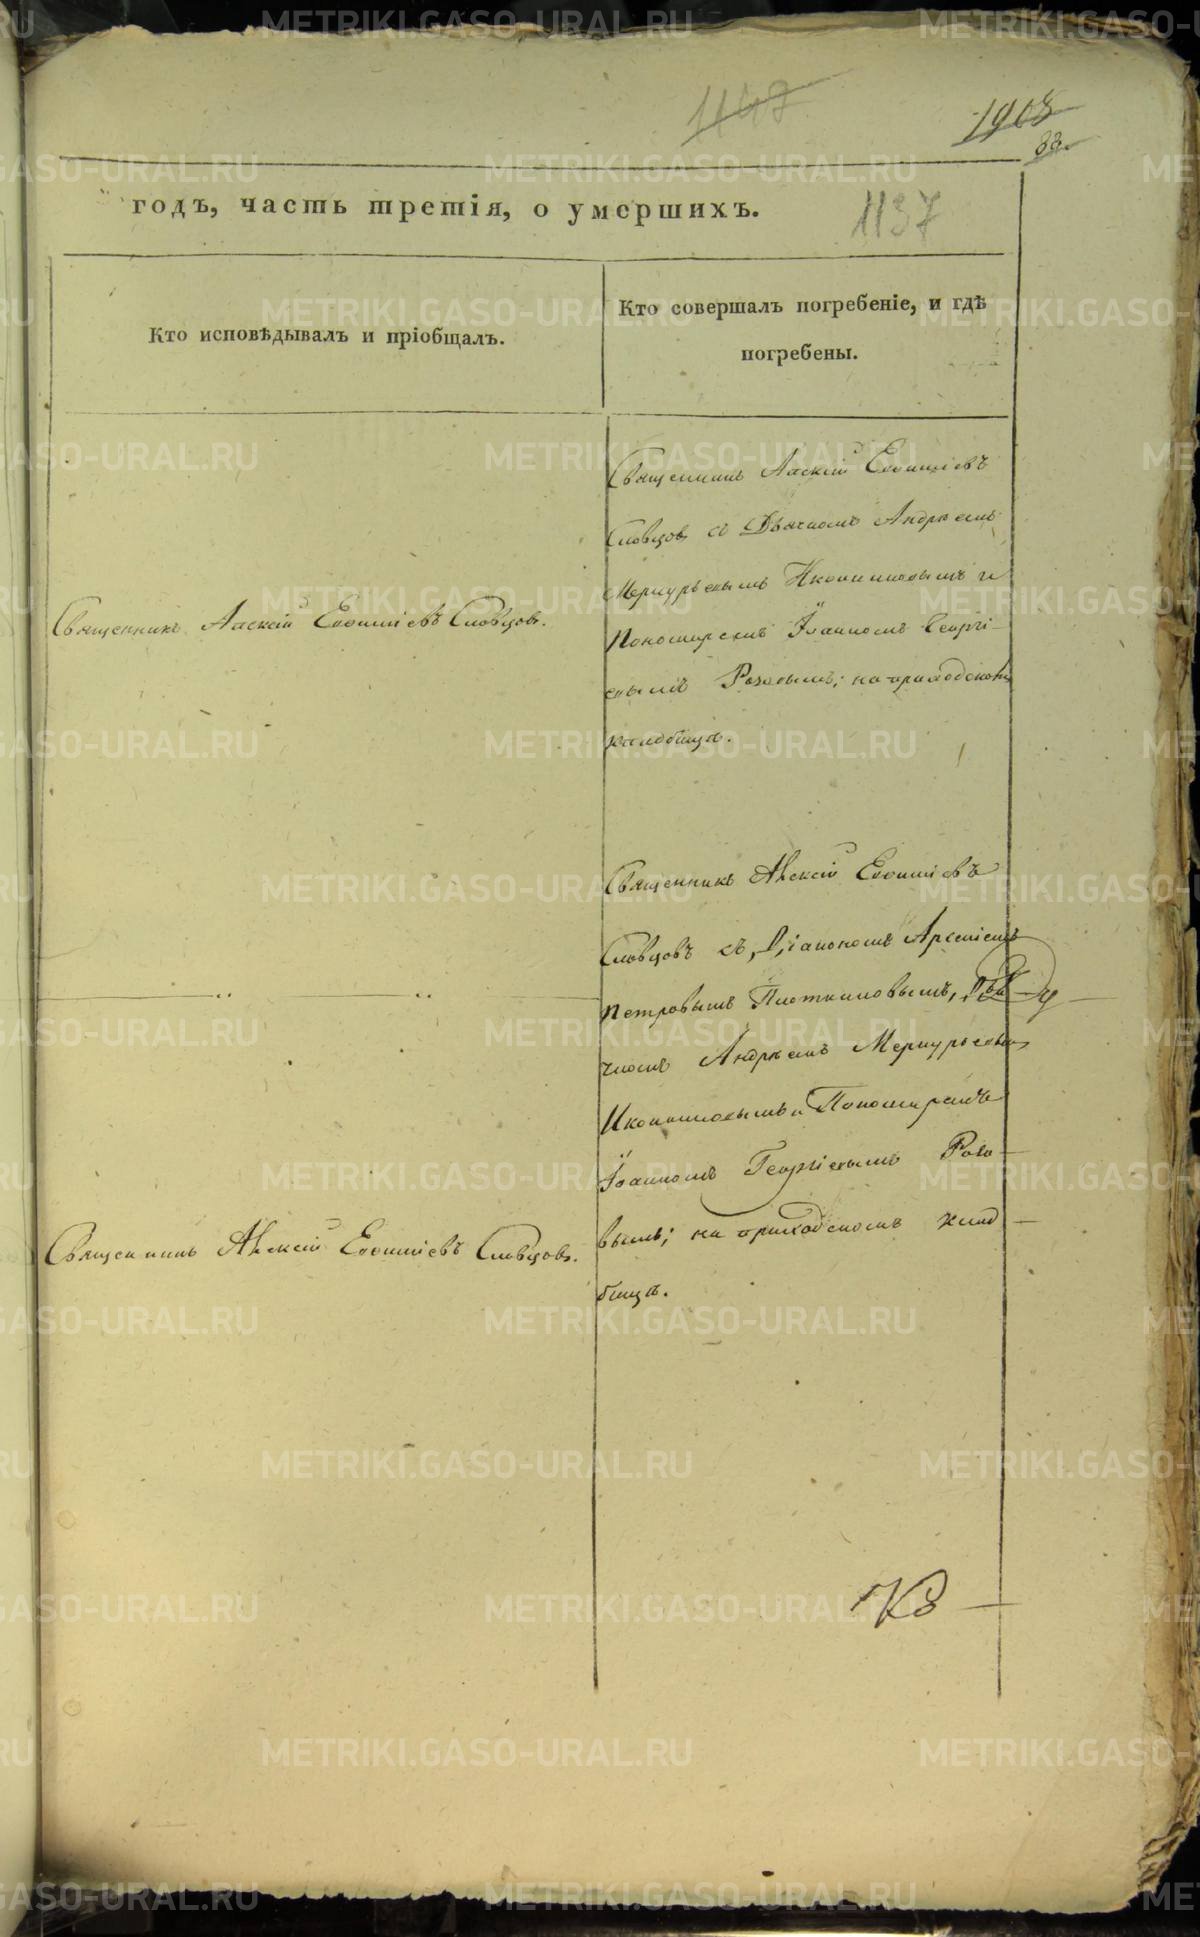 1147
1908
33.
годъ, часть третія, о умершихъ.
1137
Кто исповѣдывалъ и пріобщалъ.
Кто совершалъ погребеніе, и гдѣ
погребены.
Священникъ Алексій Евфиміевъ
Словцовъ съ Дьячкомъ Андреемъ
Меркурьевымъ Иконниковымъ и
Пономаремъ Іоанномъ Георгі-
евымъ Розовымъ; на приходскомъ
кладбищѣ.
Священникъ Алексій Евфиміевъ Словцовъ.
Священникъ Алексій Евфиміевъ
Словцовъ съ Діакономъ Арсеніемъ
Петровымъ Плотниковымъ, Дья
чкомъ Андреемъ Меркурьевымъ
Иконниковымъ и Пономаремъ
Іоанномъ Георгіевымъ Розо
вымъ; на приходскомъ клад
бищѣ.
Священникъ Алексій Евфиміевъ Словцовъ.
METRIKI.GASO-URAL.RU